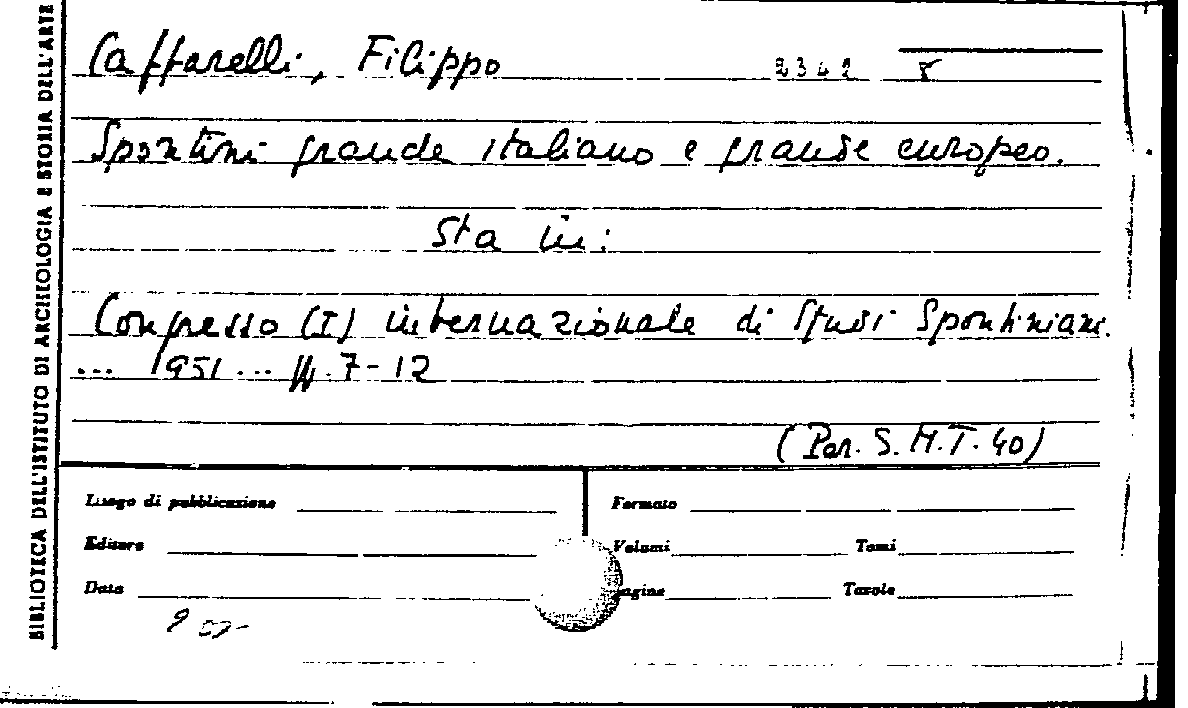 BIBLIOTECA DELL'ISTITUTO DI ARCHEOLOGIA E STORIA DELL'ARTE
Caffarelli, Filippo
Spontini grande italiano e grande europeo.
Sta in:
Congresso (I) internazionale di Studi Spontiniani.
... 1951 ... pp. 7-12
(Par. S. M. T. 40)
Luogo di pubblicazione
Formato
Editore
Volumi
Tomi
Data
Pagine
Tavole